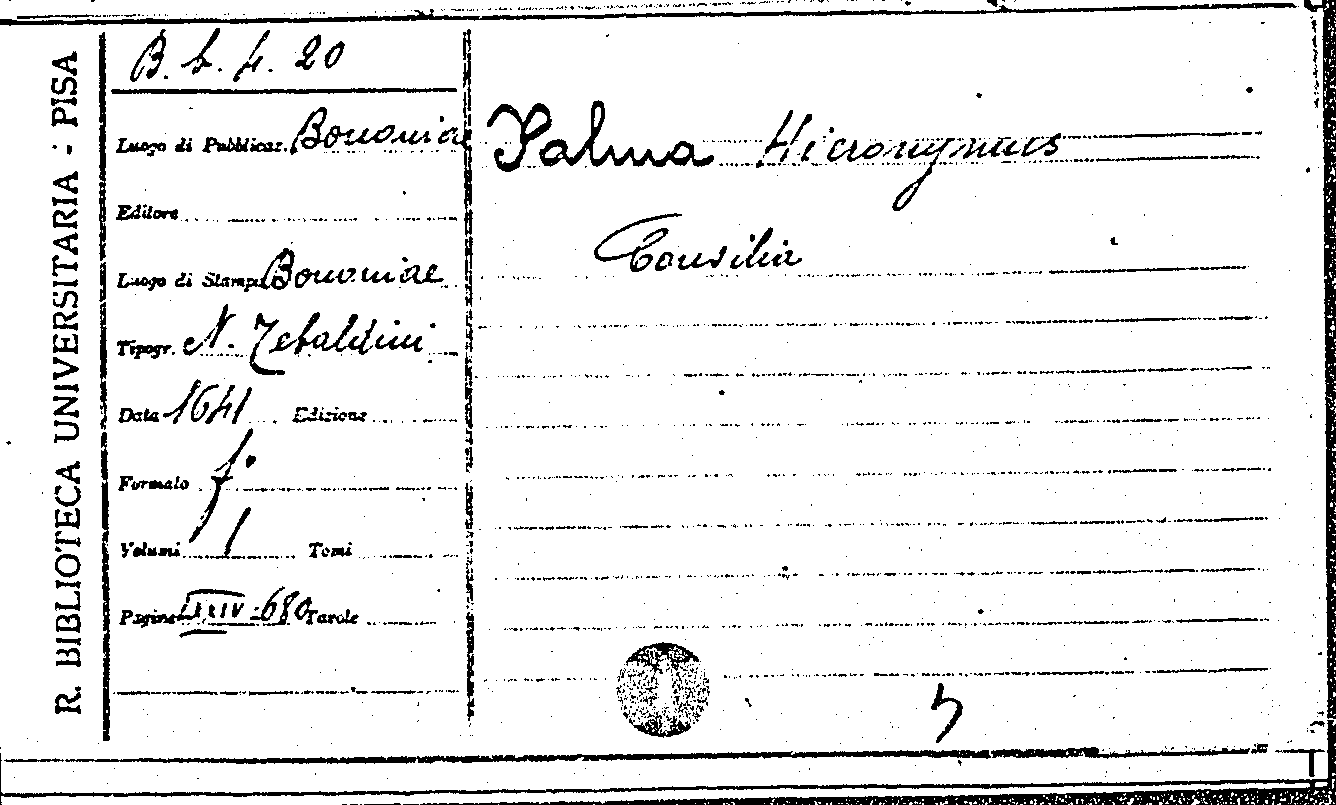 R. BIBLIOTECA UNIVERSITARIA - PISA
B. b. 4. 20
Luogo di Pubblicaz. Bononiae
Editore
Luogo di Stampa Bononiae
Tipogr. N. Tebaldini
Data 1641 Edizione
Formato f.º
Volumi 1 Tomi
Pagine LXXIV-680 Tavole
Palma Hieronymus
Consilia